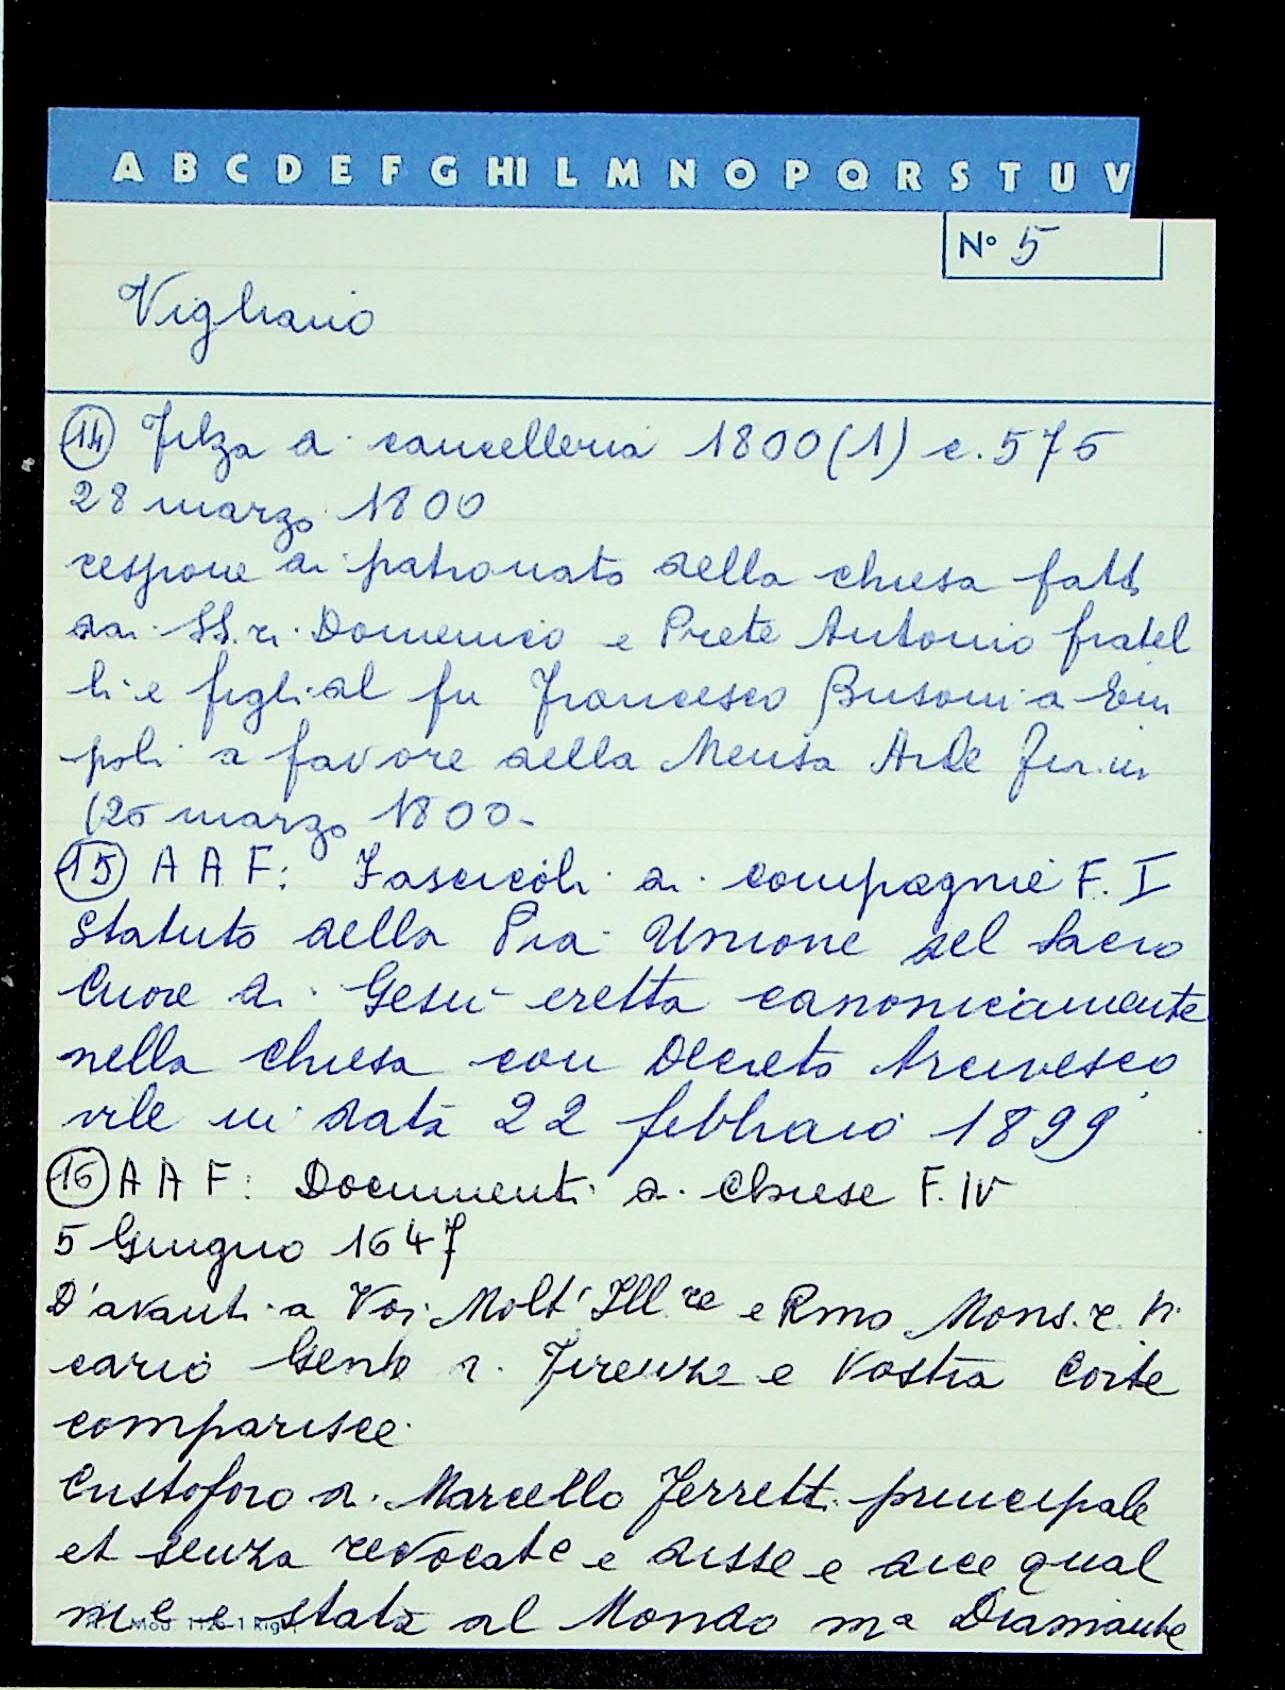 A B C D E F G HI L M N O P Q R S T U V
N° 5
Vigliano
(14) Filza di cancelleria 1800 (1) c. 575
28 marzo 1800
cespione di patronato della chiesa fatt
dai SS.ri Domenico e Prete Antonio fratel
li e figli del fu Francesco Busoni di Em
poli a favore della Mensa Arle Fior.in
(25 marzo 1800-
(15) A A F: Fascicoli di compagnie F. I
Statuto della Pia Unione del Sacro
Cuore di Gesù eretta canonicamente
nella chiesa con Decreto Arcivesco
vile in data 22 febbraio 1899
(16) A A F: Documenti di Chiese F. IV
5 Giugno 1647
D'avanti a Voi Molt' Ill.re e Rmo Mons.r. Vi
cario Genle di Firenze e Vostra Corte
comparisce
Cristoforo di Marcello Ferretti principale
et senza revocate e disse e dice qual
me è stata al Mondo ma Diamante
Mod. 1126-1 Rig.